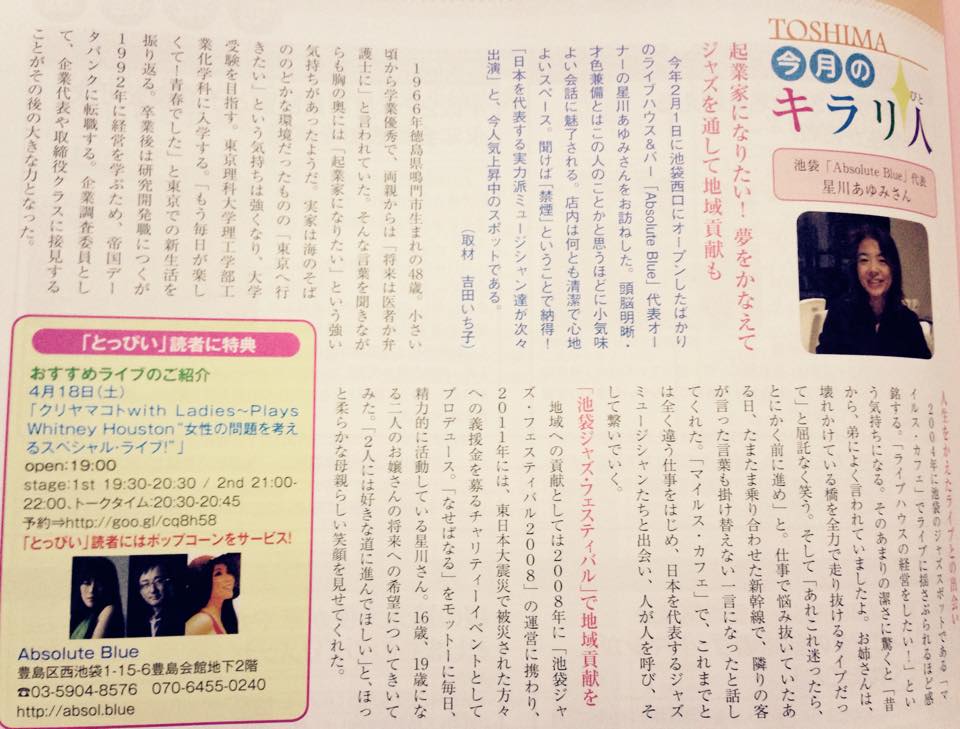 TOSHIMA
今月の
キラリ人
びと
池袋「Absolute Blue」代表
星川あゆみさん
起業家になりたい！夢をかなえて
ジャズを通して地域貢献も
今年２月１日に池袋西口にオープンしたばかり
のライブハウス＆バー「Absolute Blue」代表オー
ナーの星川あゆみさんをお訪ねした。頭脳明晰・
才色兼備とはこの人のことかと思うほどに小気味
よい会話に魅了される。店内は何とも清潔で心地
よいスペース。聞けば「禁煙」ということで納得！
「日本を代表する実力派ミュージシャン達が次々
出演」と、今人気上昇中のスポットである。
（取材　吉田いち子）
１９６６年徳島県鳴門市生まれの48歳。小さい
頃から学業優秀で、両親からは「将来は医者か弁
護士に」と言われていた。そんな言葉を聞きなが
らも胸の奥には「起業家になりたい」という強い
気持ちがあったようだ。実家は海のそば
ののどかな環境だったものの「東京へ行
きたい」という気持ちは強くなり、大学
受験を目指す。東京理科大学理工学部工
業化学科に入学する。「もう毎日が楽し
くて！青春でした」と東京での新生活を
振り返る。卒業後は研究開発職につくが
１９９２年に経営を学ぶため、帝国デー
タバンクに転職する。企業調査委員とし
て、企業代表や取締役クラスに接見する
ことがその後の大きな力となった。
人生をかえたライブとの出会い
２００４年に池袋のジャズスポットである「マ
イルス・カフェ」でライブに揺さぶられるほど感
銘する。「ライブハウスの経営をしたい！」とい
う気持ちになる。そのあまりの潔さに驚くと「昔
から、弟によく言われていましたよ。お姉さんは、
壊れかけている橋を全力で走り抜けるタイプだっ
て」と屈託なく笑う。そして「あれこれ迷ったら、
とにかく前に進め」と。仕事で悩み抜いていたあ
る日、たまたま乗り合わせた新幹線で、隣りの客
が言った言葉も掛け替えない一言になったと話し
てくれた。「マイルス・カフェ」で、これまでと
は全く違う仕事をはじめ、日本を代表するジャズ
ミュージシャンたちと出会い、人が人を呼び、そ
して繋いでいく。
「池袋ジャズ・フェスティバル」で地域貢献を
地域への貢献としては２００８年に「池袋ジャ
ズ・フェスティバル２００８」の運営に携わり、
２０１１年には、東日本大震災で被災された方々
への義援金を募るチャリティーイベントとして
プロデュース。「なせばなる」をモットーに毎日、
精力的に活動している星川さん。16歳、19歳にな
る二人のお嬢さんの将来への希望についてきいて
みた。「２人には好きな道に進んでほしい」と、ほっ
と柔らかな母親らしい笑顔を見せてくれた。
「とっぴぃ」読者に特典
おすすめライブのご紹介
4月18日(土)
「クリヤマコトwith Ladies～Plays
Whitney Houston“女性の問題を考え
るスペシャル・ライブ!”」
open:19:00
stage:1st 19:30-20:30 / 2nd 21:00-
22:00､トークタイム:20:30-20:45
予約⇒http://goo.gl/cq8h58
「とっぴぃ」読者にはポップコーンをサービス!
Absolute Blue
豊島区西池袋1-15-6豊島会館地下2階
☎03-5904-8576　070-6455-0240
http://absol.blue